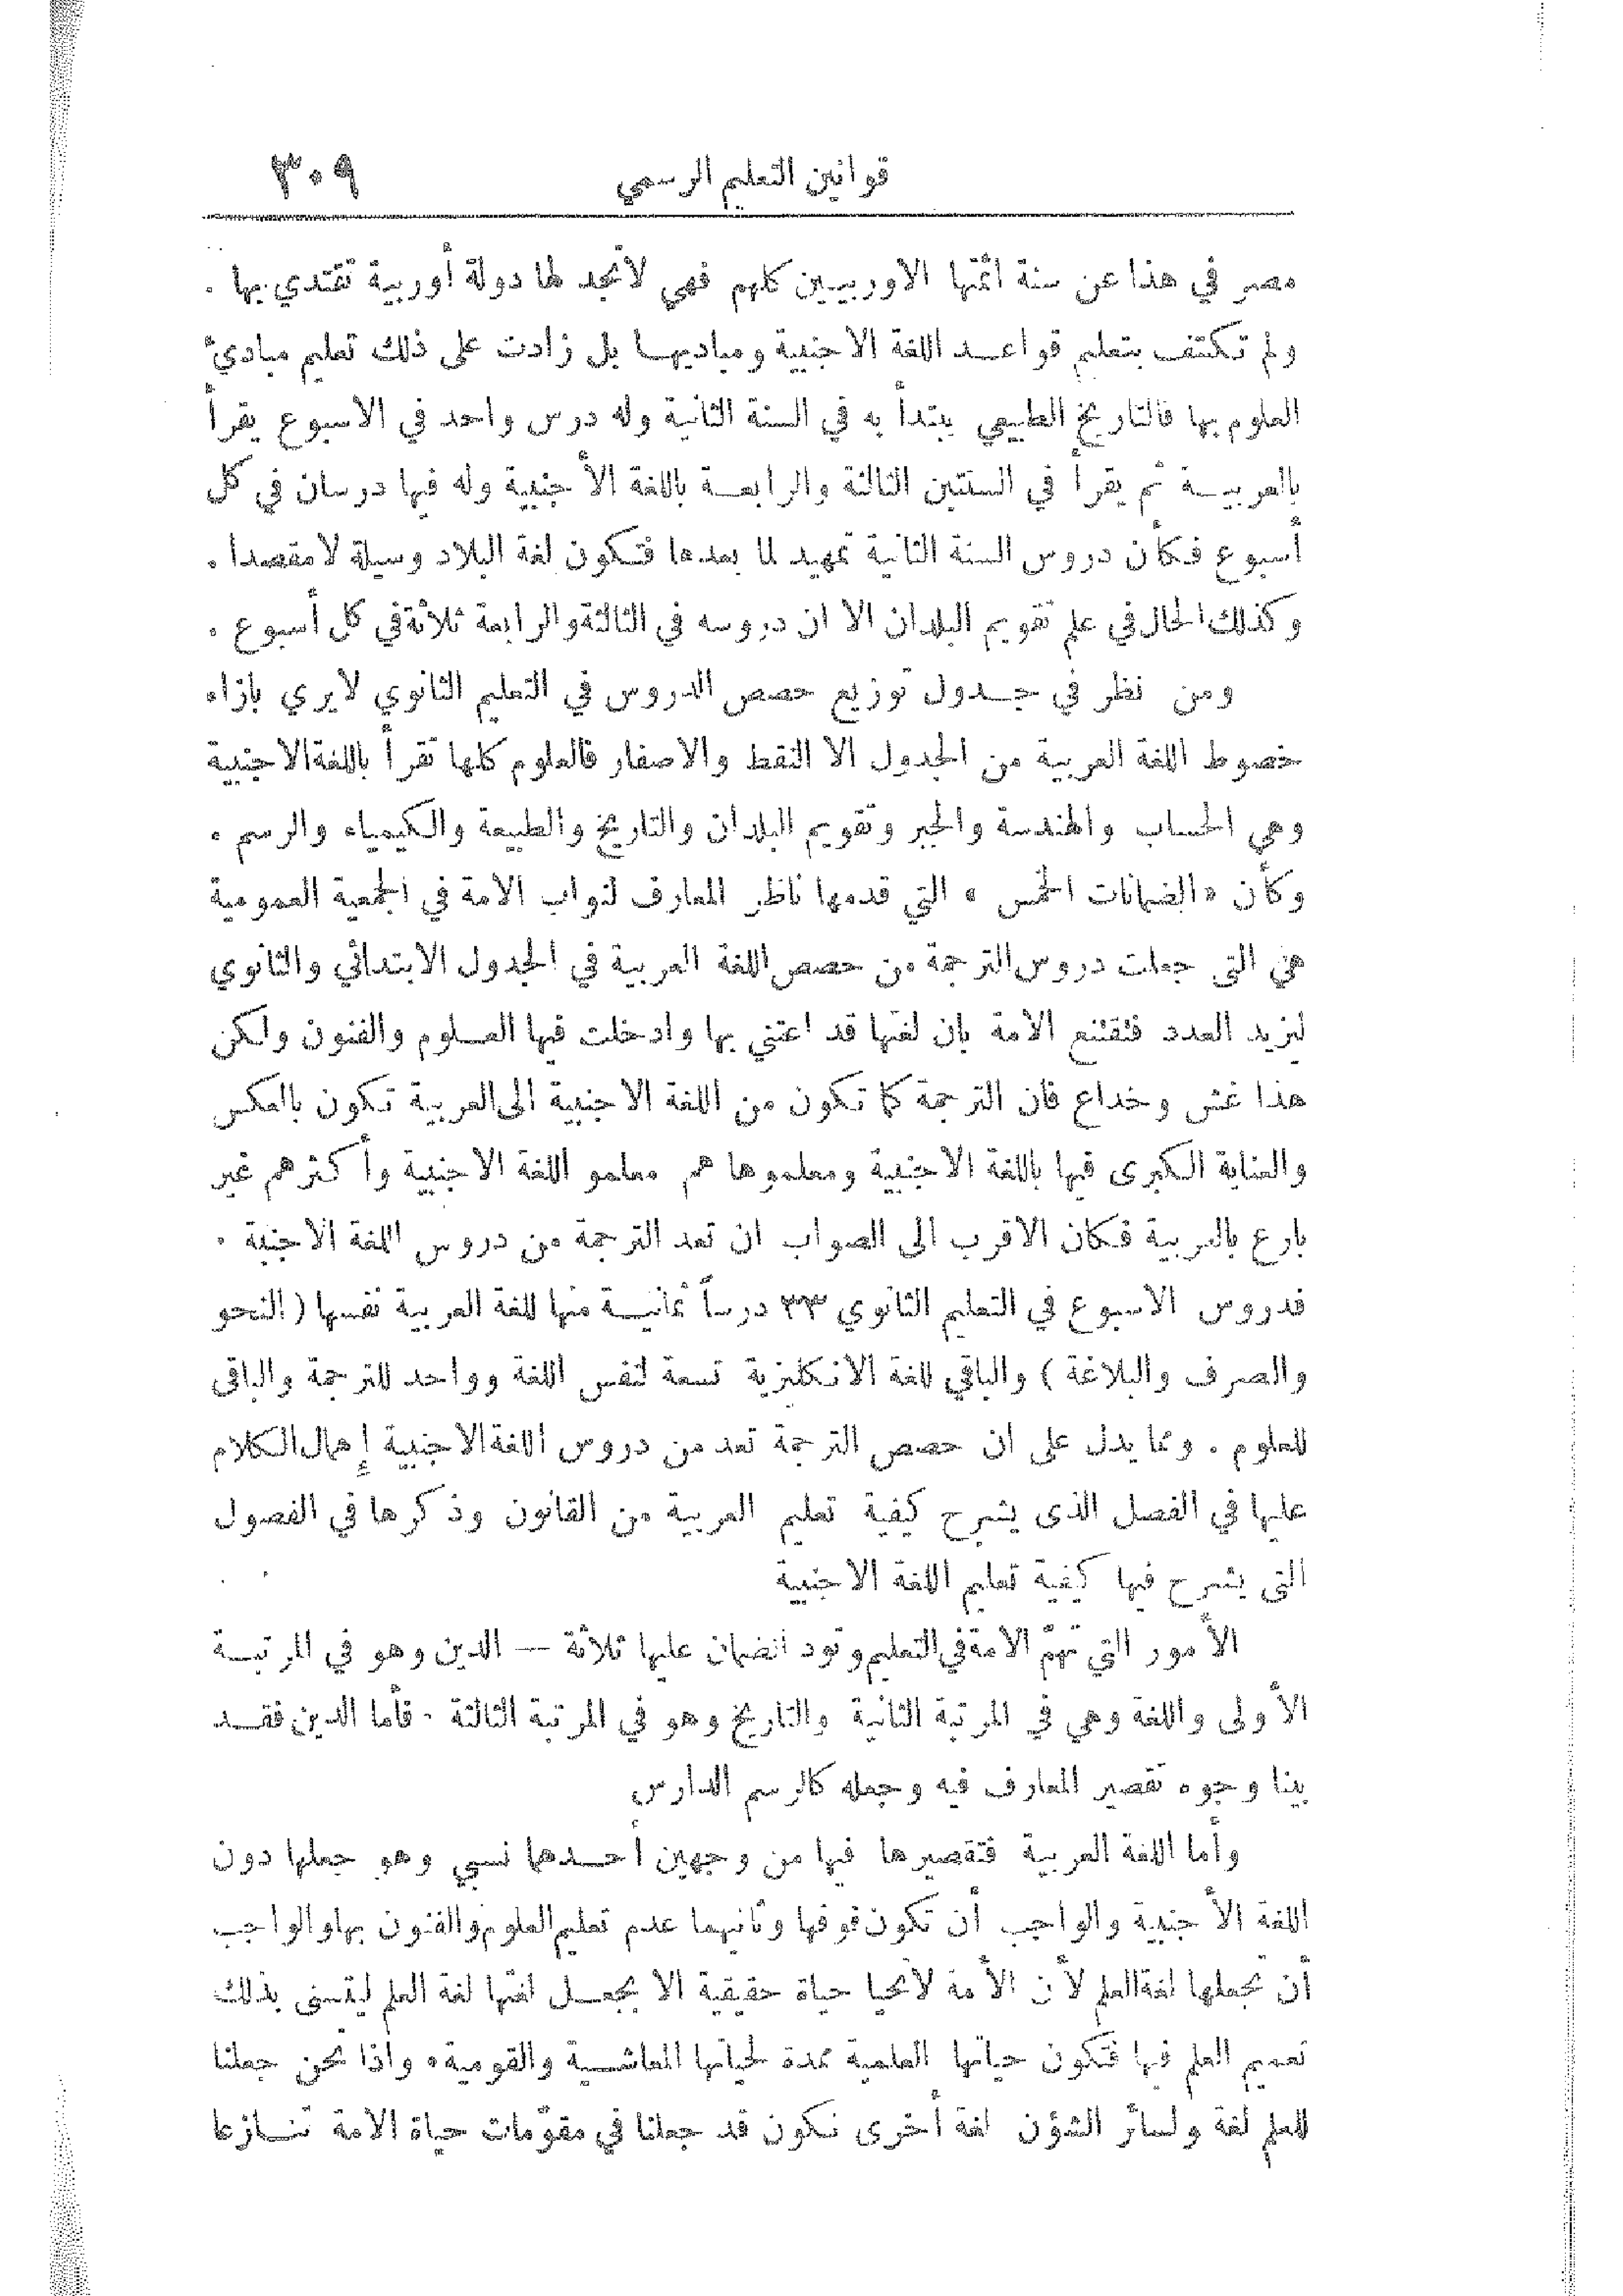 قوانين التعليم الرسمي ٣٠٩
مصر في هذا عن سنة ائمتها الاوربيين كلهم فهي لا تجد لها دولة أوربية تقتدي بها .
ولم تكتف بتعليم قواعد اللغة الاجنبية ومباديها بل زادت على ذلك تعليم مبادئ
العلوم بها فالتاريخ الطبيعي يبتدأ به في السنة الثانية وله درس واحد في الاسبوع يقرأ
بالعربية ثم يقرأ في السنتين الثالثة والرابعة باللغة الأجنبية وله فيها درسان في كل
أسبوع فكأن دروس السنة الثانية تمهيد لما بعدها فتكون لغة البلاد وسيلة لا مقصدا .
وكذلك الحال في علم تقويم البلدان الا ان دروسه في الثالثة والرابعة ثلاثة في كل أسبوع .
ومن نظر في جدول توزيع حصص الدروس في التعليم الثانوي لا يري بازاء
خصوط اللغة العربية من الجدول الا النقط والاصفار فالعلوم كلها تقرأ باللغة الاجنبية
وهي الحساب والهندسة والجبر وتقويم البلدان والتاريخ والطبيعة والكيمياء والرسم .
وكأن «الضمانات الخمس» التي قدمها ناظر المعارف لنواب الامة في الجمعية العمومية
هي التى جعلت دروس الترجمة من حصص اللغة العربية في الجدول الابتدائي والثانوي
ليزيد العدد فتقتنع الامة بان لغتها قد اعتني بها وادخلت فيها العلوم والفنون ولكن
هذا غش وخداع فان الترجمة كما تكون من اللغة الاجنبية الى العربية تكون بالعكس
والعناية الكبرى فيها باللغة الاجنبية ومعلموها هم معلمو اللغة الاجنبية وأكثرهم غير
بارع بالعربية فكان الاقرب الى الصواب ان تعد الترجمة من دروس اللغة الاجنبية .
فدروس الاسبوع في التعليم الثانوي ٣٣ درساً ثمانية منها للغة العربية نفسها ( النحو
والصرف والبلاغة ) والباقي للغة الانكليزية تسعة لنفس اللغة وواحد للترجمة والباقى
للعلوم . ومما يدل على ان حصص الترجمة تعد من دروس اللغة الاجنبية إهمال الكلام
عليها في الفصل الذى يشرح كيفية تعليم العربية من القانون وذكرها في الفصول
التى يشرح فيها كيفية تعليم اللغة الاجنبية
الأمور التي تهمّ الامة في التعليم وتود الضمان عليها ثلاثة — الدين وهو في المرتبة
الأولى واللغة وهي في المرتبة الثانية والتاريخ وهو في المرتبة الثالثة . فأما الدين فقد
بينا وجوه تقصير المعارف فيه وجعله كالرسم الدارس
وأما اللغة العربية فتقصيرها فيها من وجهين أحدهما نسبي وهو جعلها دون
اللغة الأجنبية والواجب أن تكون فوقها وثانيهما عدم تعليم العلوم والفنون بها والواجب
أن تجعلها لغة العلم لأن الأمة لا تحيا حياة حقيقية الا بجعل لغتها لغة العلم ليتسنى بذلك
تعميم العلم فيها فتكون حياتها العلمية عمدة لحياتها المعاشية والقومية . واذا نحن جعلنا
للعلم لغة ولسائر الشؤن لغة أخرى نكون قد جعلنا في مقوّمات حياة الامة تنازعا